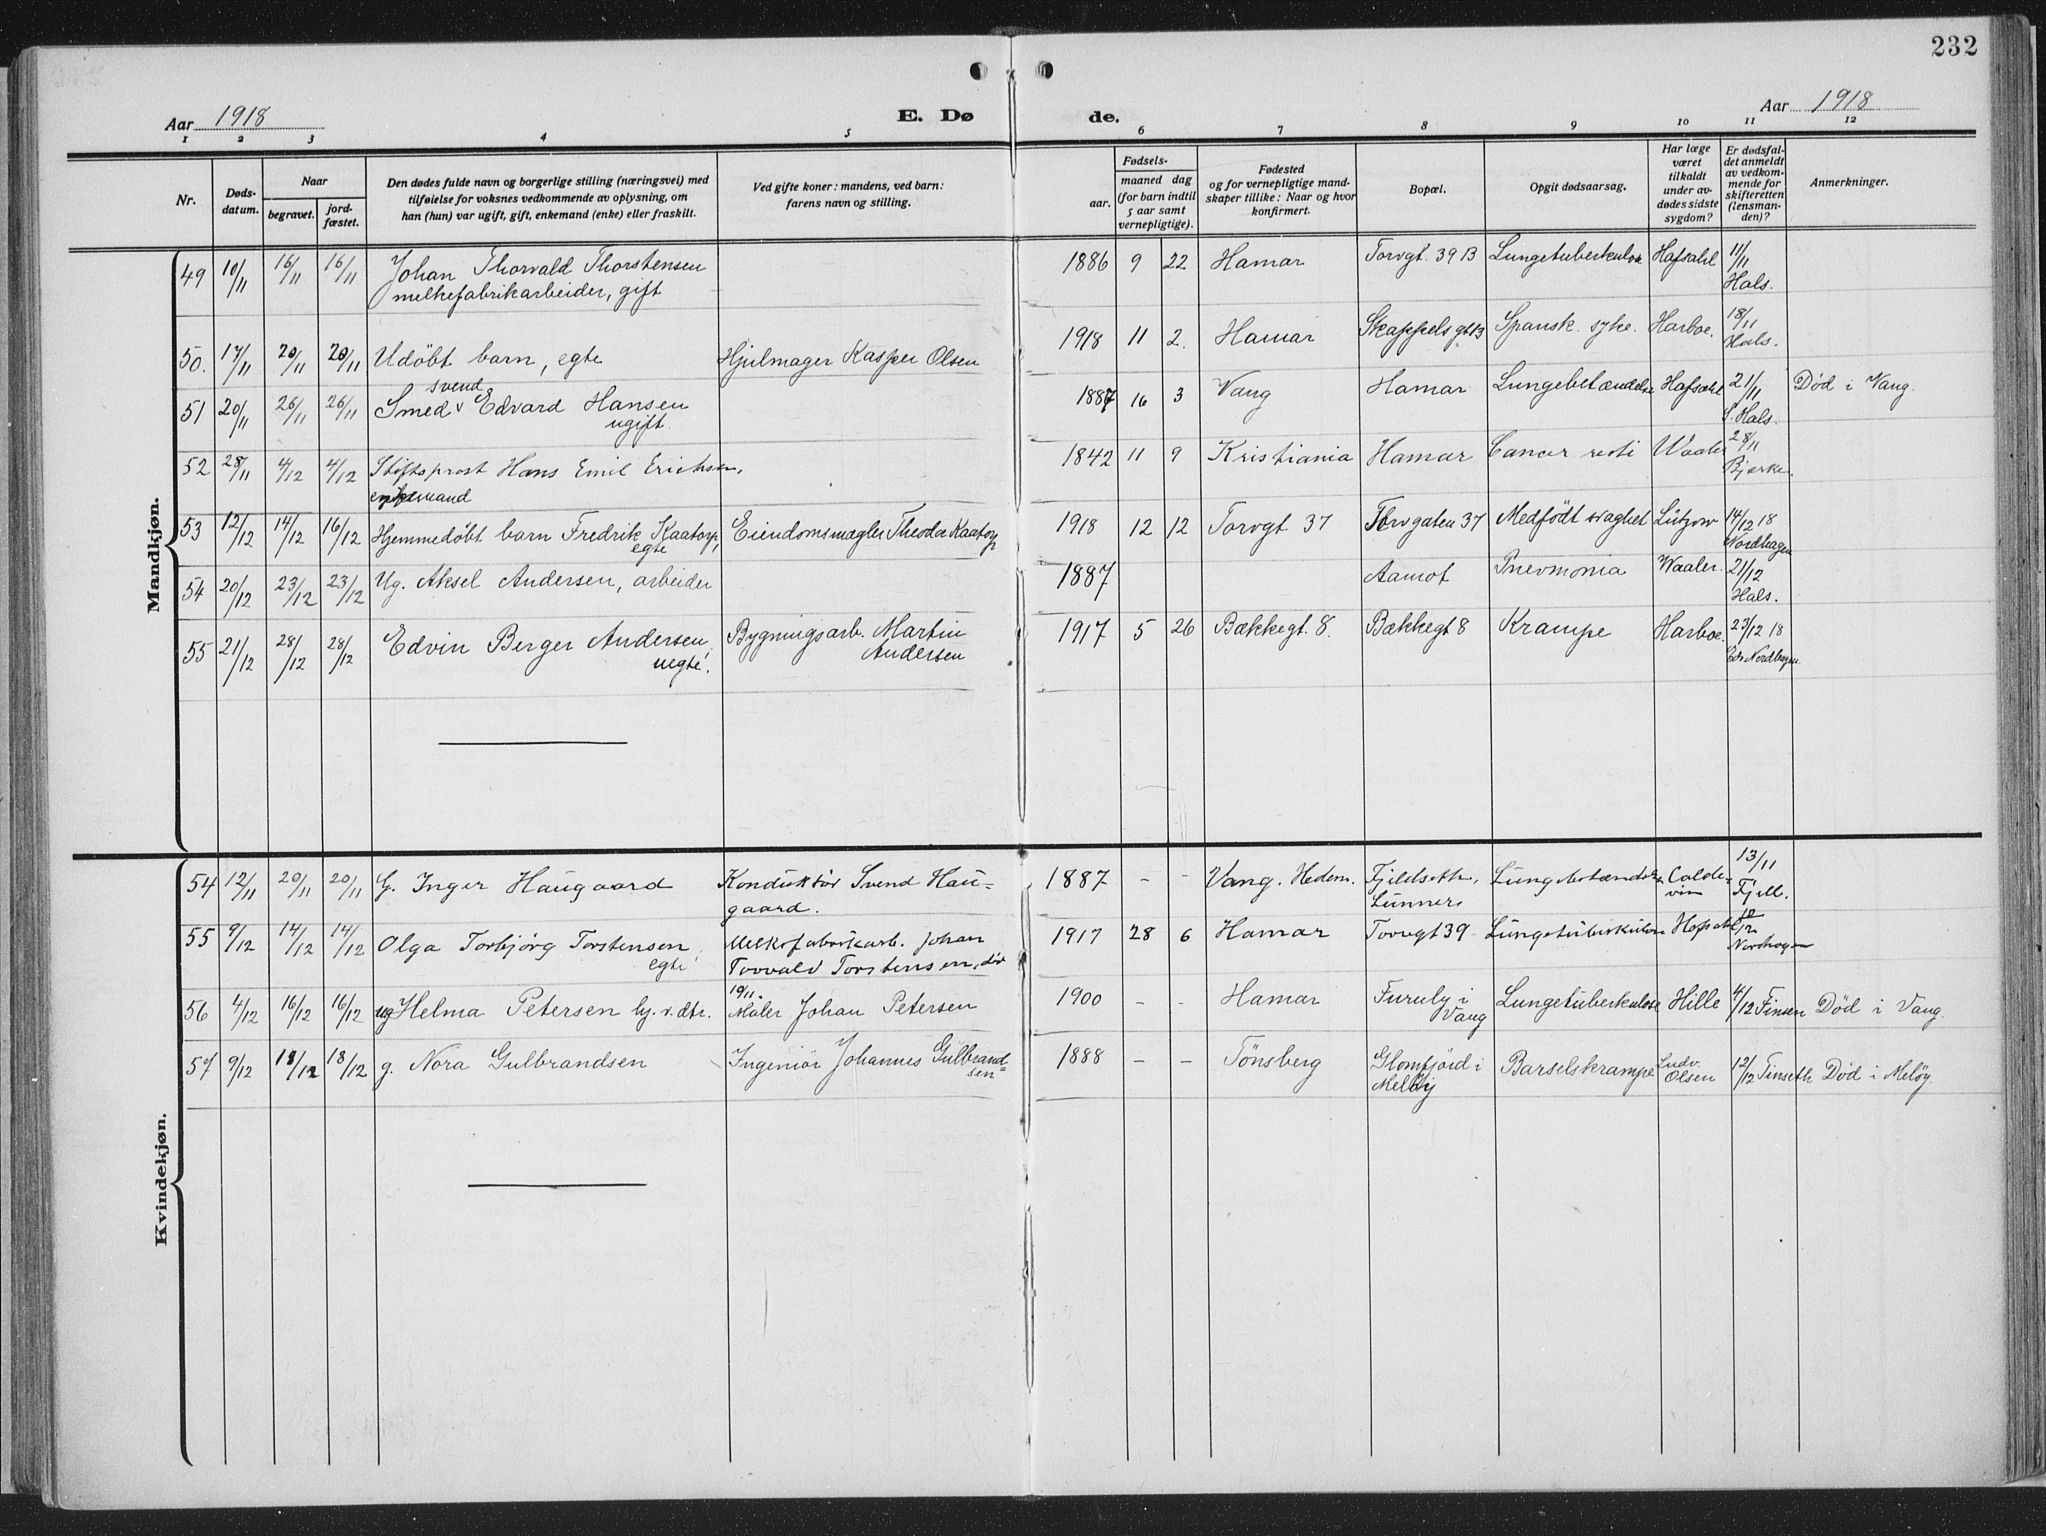 232
Aar 1918
E. Dø
de.
Aar 1918
1 2 3 4 5 6 7 8 9 10 11 12
Nr.
Døds-
datum.
Naar
begravet.
jord-
fæstet.
Den dødes fulde navn og borgerlige stilling (næringsvei) med
tilføielse for voksnes vedkommende av oplysning, om
han (hun) var ugift, gift, enkemand (enke) eller fraskilt.
Ved gifte koner: mandens, ved barn:
farens navn og stilling.
Fødsels-
aar.
maaned dag
(for barn indtil
5 aar samt
vernepligtige).
Fødested
og for vernepligtige mand-
skaper tillike: Naar og hvor
konfirmert.
Bopæl.
Opgit dødsaarsag.
Har læge
været
tilkaldt
under av-
dødes sidste
sygdom?
Er dødsfal-
det anmeldt
av vedkom-
mende for
skifteretten
(lensman-
den)?
Anmerkninger.
Mandkjøn.
49 10/11 16/11 16/11 Johan Thorvald Thorstensen 1886 9 22 Hamar Torvgt. 39 B Lungetuberkulose Hafsahl 11/11
melkefabrikarbeider, gift Hals.
50. 17/11 20/11 20/11 Udøbt barn, egte Hjulmager Kasper Olsen 1918 11 2. Hamar Skappels gt 13 Spansk. syke. Harboe. 18/11
Hals.
svend
51 20/11 26/11 26/11 Smed v Edvard Hansen 1887 16 3 Vang Hamar Lungebetændelse Hafsahl 21/11 Død i Vang.
ugift. S. Hals.
52 28/11 4/12 4/12 Stiftsprost Hans Emil Erichsen, 1842 11 9 Kristiania Hamar Cancer recti Waaler 28/11
enkemand Bjerke.
53 12/12 14/12 16/12 Hjemmedøbt barn Fredrik Kaatorp, Eiendomsmægler Theodor Kaatorp 1918 12 12 Torvgt 37 Torvgaten 37 Medfödt svaghet Lützow 14/12 18
egte Nordhagen
54 20/12 23/12 23/12 Ug. Aksel Andersen, arbeider 1887 Aamot Pnevmonia Waaler. 21/12
Hals.
55 21/12 28/12 28/12 Edvin Berger Andersen, Bygningsarb. Martin 1917 5 26 Bækkegt. 8. Bækkegt 8 Krampe Harboe. 23/12 18
uegte. Andersen Nordhagen
Kvindekjøn.
54 12/11 20/11 20/11 G. Inger Haugaard Konduktör Svend Hau- 1887 - - Vang. Hedem. Fjeldseth, Lungebetændelse Colde- 13/11
gaard. Lunner vin Fjell.
55 9/12 14/12 14/12 Olga Torbjörg Torstensen Melkefabrikarb. Johan 1917 28 6 Hamar Torvgt 39 Lungetuberkulose Hafsahl 10/12
egte Torvald Torstensen, död Nordhagen
10/11.
56 4/12 16/12 16/12 ug Helma Petersen hj. v. dtr. Maler Johan Petersen 1900 - - Hamar Furuly i Lungetuberkulose Hille 4/12 Finsen Død i Vang.
Vang
57 9/12 18/12 18/12 g. Nora Gulbrandsen Ingeniör Johannes Gulbrand= 1888 - - Tönsberg Glomfjord i Barselskrampe Ludv. 12/12 Finseth Død i Meløy
sen Meløy Olsen